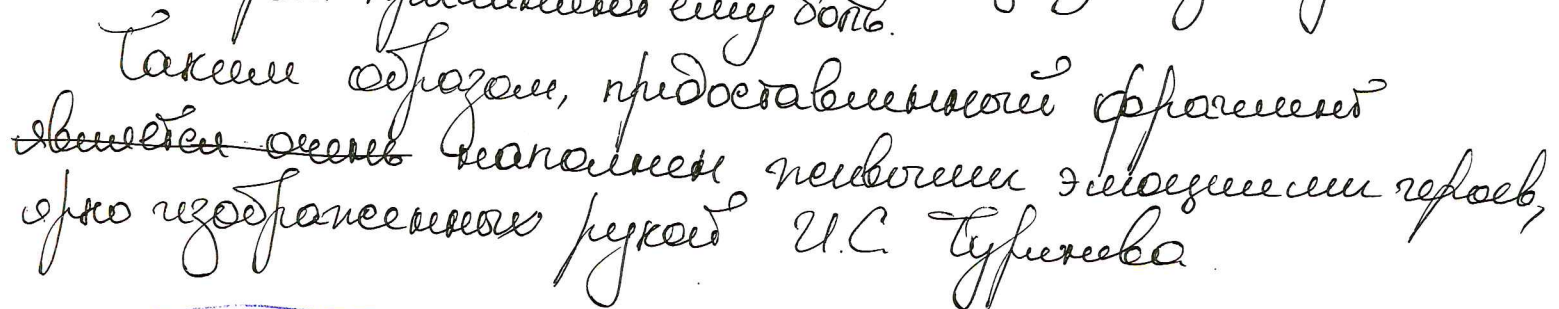 ему боль.
Таким образом, предоставленный фрагмент
является очень наполнен живыми эмоциями героев,
ярко изображенных рукой И.С. Тургенева.